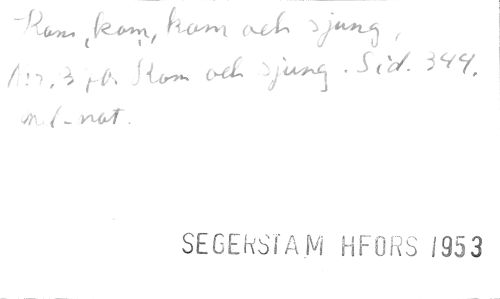 Kom, kom, kom och sjung,
Nr. 3 på Kom och sjung. Sid. 344.
mel-not.
SEGERSTAM HFORS 1953